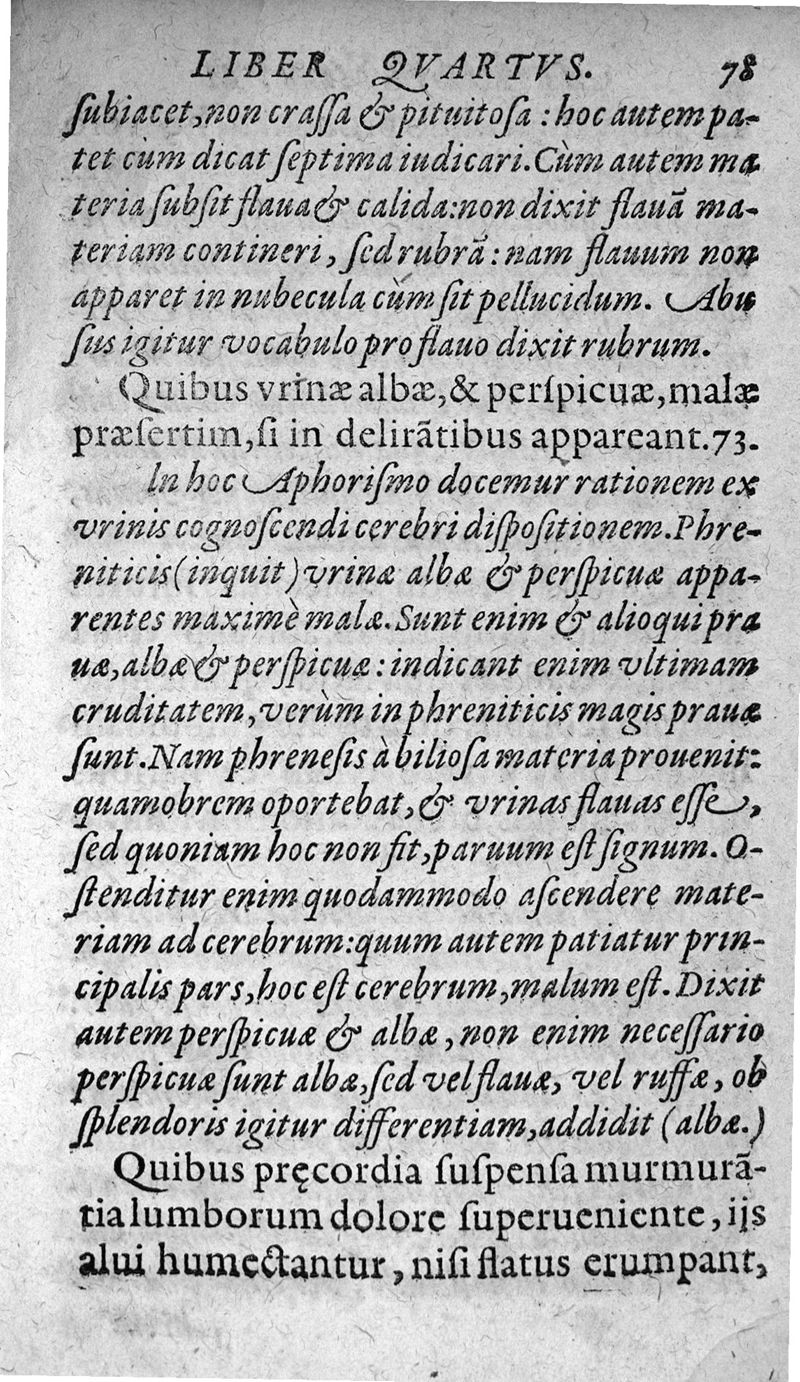 LIBER QVARTVS. 78
ſubiacet, non craſſa & pituitoſa : hoc autem pa-
tet cùm dicat ſeptima iudicari. Cùm autem ma
teria ſubſit flaua & calida: non dixit flauā ma-
teriam contineri, ſed rubrā: nam flauum non
apparet in nubecula cùm ſit pellucidum. Abu
ſus igitur vocabulo pro flauo dixit rubrum.
Quibus vrinæ albæ, & perſpicuæ, malæ
præſertim, ſi in delirātibus appareant. 73.
In hoc Aphoriſmo docemur rationem ex
vrinis cognoſcendi cerebri diſpoſitionem. Phre-
niticis (inquit) vrinæ albæ & perſpicuæ appa-
rentes maximè malæ. Sunt enim & alioqui pra
uæ, albæ & perſpicuæ: indicant enim vltimam
cruditatem, verùm in phreniticis magis prauæ
ſunt. Nam phreneſis à bilioſa materia prouenit:
quamobrem oportebat, & vrinas flauas eſſe,
ſed quoniam hoc non fit, paruum eſt ſignum. O-
ſtenditur enim quodammodo aſcendere mate-
riam ad cerebrum: quum autem patiatur prin-
cipalis pars, hoc eſt cerebrum, malum eſt. Dixit
autem perſpicuæ & albæ, non enim neceſſario
perſpicuæ ſunt albæ, ſed vel flauæ, vel ruffæ, ob
ſplendoris igitur differentiam, addidit (albæ.)
Quibus pręcordia ſuſpenſa murmurā-
tia lumborum dolore ſuperueniente, ijs
alui humectantur, niſi flatus erumpant,